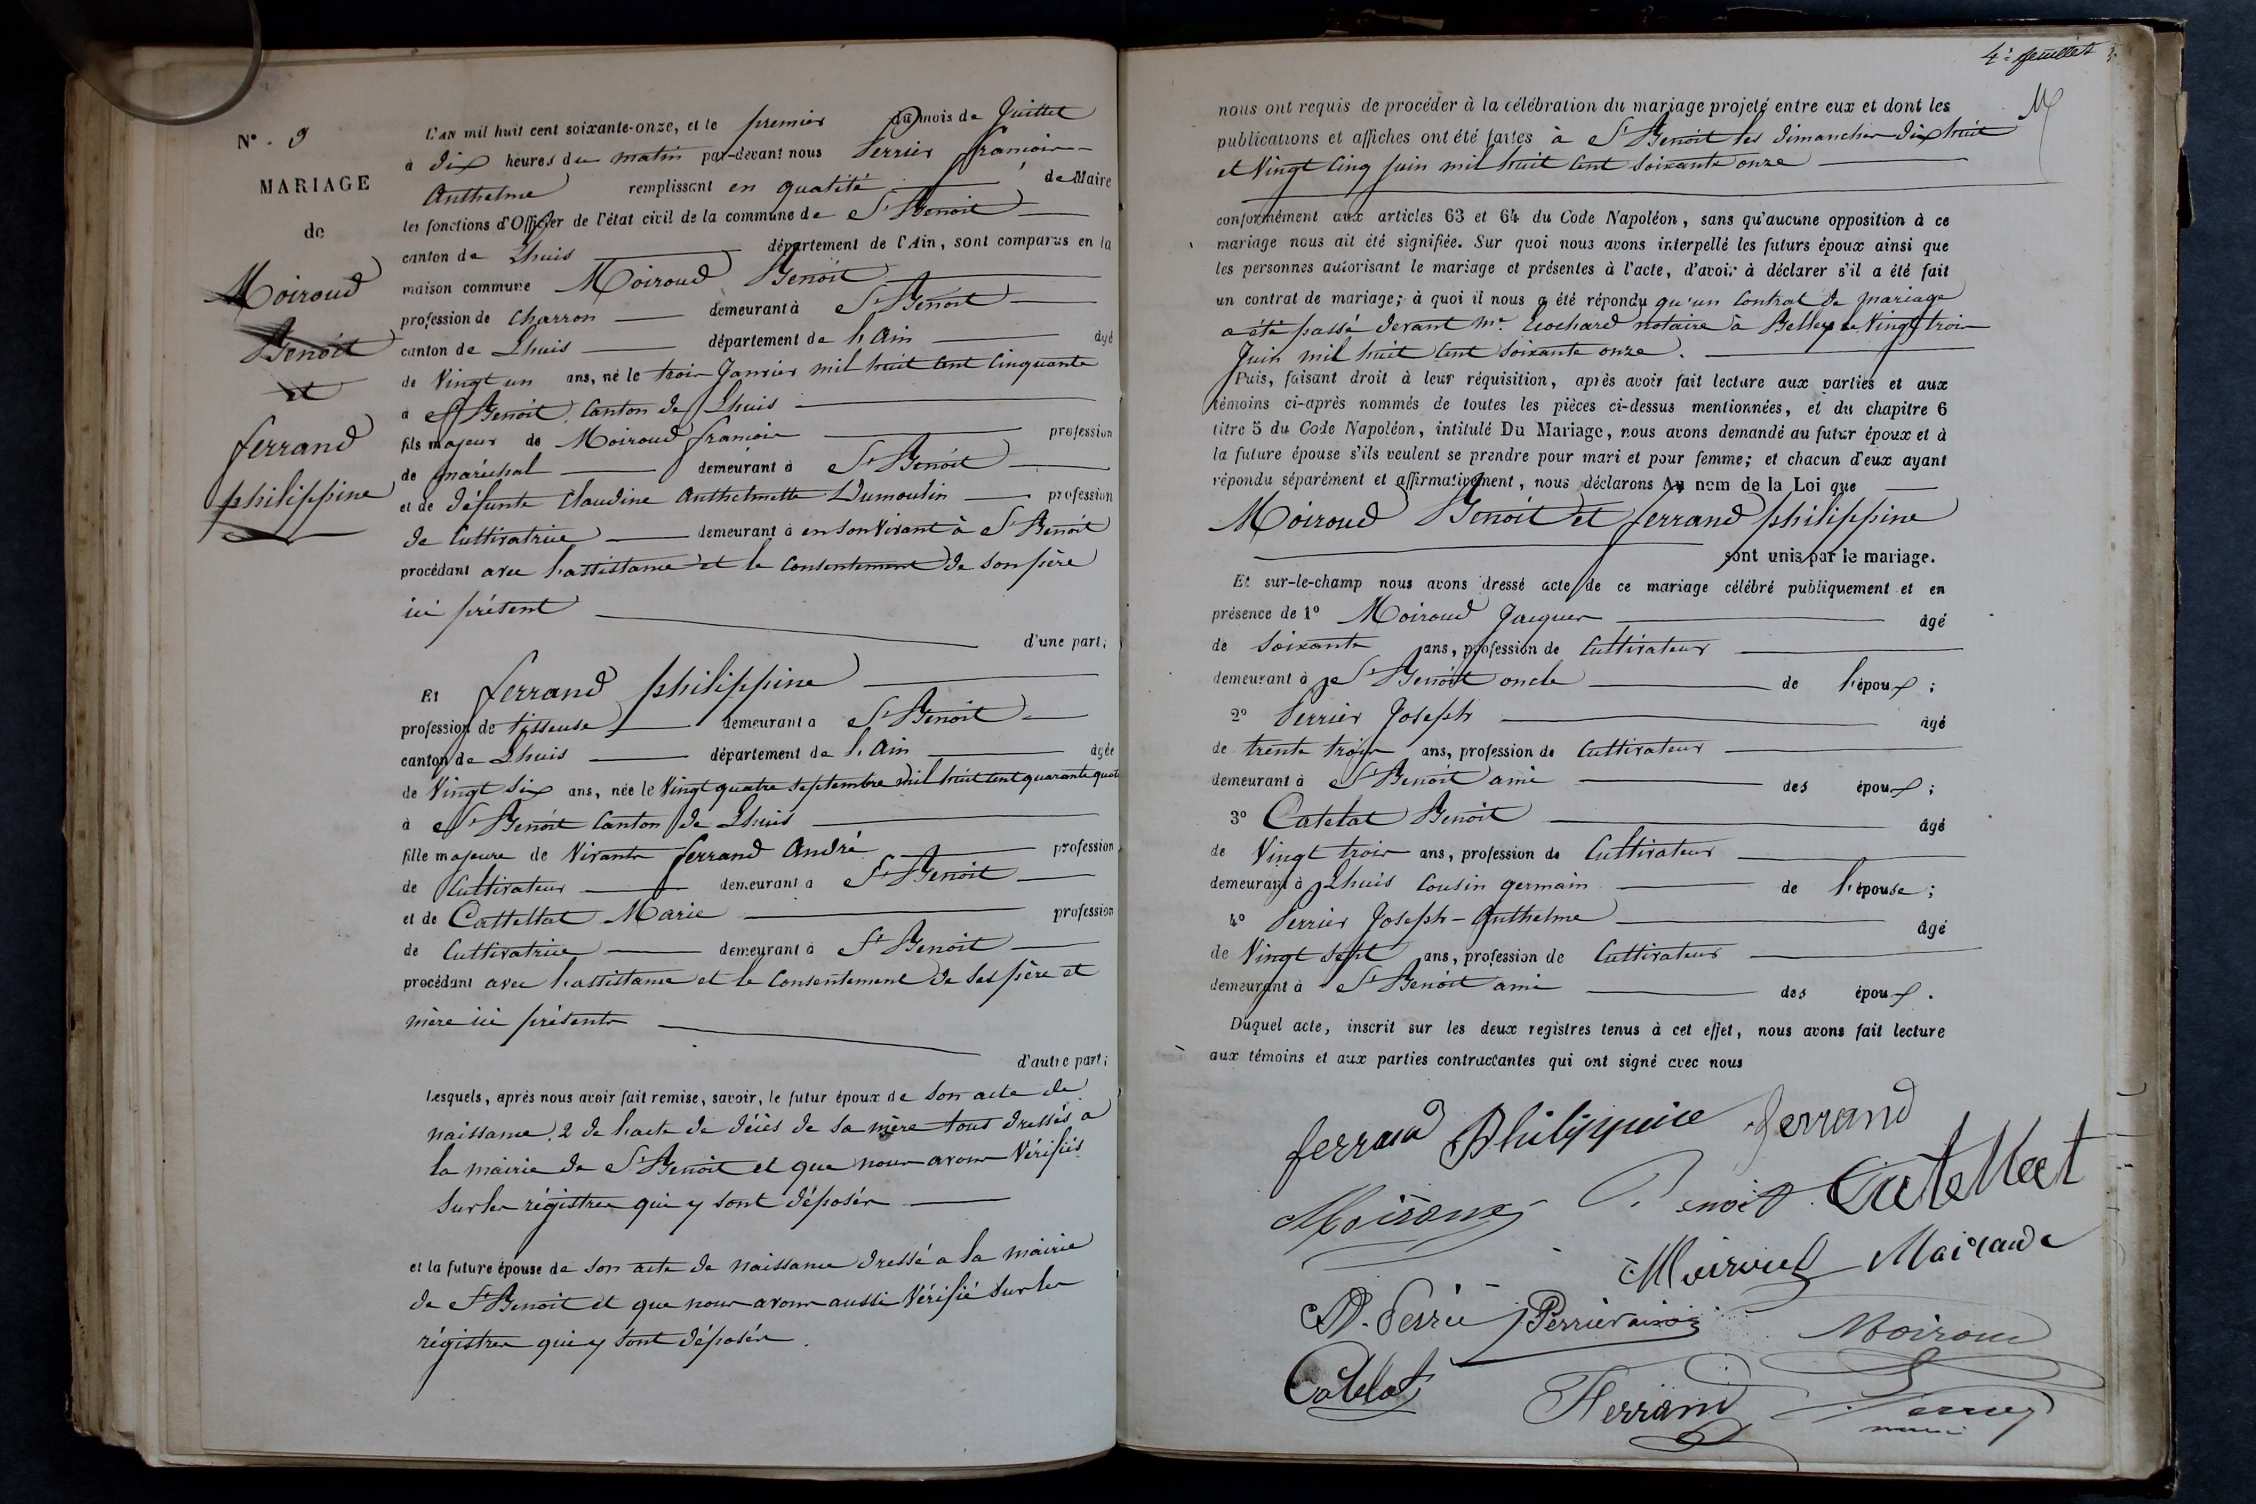 N° . 9
MARIAGE
de
Moiroud
Benoit
et
ferrand
philippine
L'AN mil huit cent soixante-onze, et le premier du mois de Juillet
à dix heures du matin par-devant nous Perrier françois
Anthelme remplissant en qualité de Maire
les fonctions d'Officier de l'état civil de la commune de St Benoit
canton de Lhuis département de l'Ain, sont comparus en la
maison commune Moiroud Benoit
profession de charron demeurant à St Benoit
canton de Lhuis département de l'Ain âgé
de Vingt un ans, né le trois Janvier mil huit cent cinquante
à St Benoit, canton de Lhuis
fils majeur de Moiroud françois profession
de maréchal demeurant à St Benoit
et de défunte Claudine Anthelmette Dumoulin profession
de Cultivatrice demeurant à en son Vivant à St Benoit
procédant avec l'assistance et le consentement de son père
ici présent
d'une part;
Et ferrand philippine
profession de tisseuse demeurant à St Benoit
canton de Lhuis département de l'Ain âgée
de Vingt six ans, née le Vingt quatre septembre mil huit cent quarante quat
à St Benoit Canton de Lhuis
fille majeure de Vivants ferrand André profession
de Cultivateur demeurant à St Benoit
et de Cattellat Marie profession
de Cultivatrice demeurant à St Benoit
procédant avec l'assistance et le consentement de ses père et
mère ici présents
d'autre part;
Lesquels, après nous avoir fait remise, savoir, le futur époux de son acte de
naissance, 2 de l'acte de décès de sa mère tous dressés a
la mairie de St Benoit et que nous avons Vérifiés
sur les régistres qui y sont déposés
et la future épouse de son acte de naissance dressé a la mairie
de St Benoit et que nous avons aussi Vérifié sur les
régistres qui y sont déposés.
4e feuillet
nous ont requis de procéder à la célébration du mariage projeté entre eux et dont les
publications et affiches ont été faites à St Benoit les dimanches dix huit
et Vingt cinq juin mil huit cent soixante onze
conformément aux articles 63 et 64 du Code Napoléon, sans qu'aucune opposition à ce
mariage nous ait été signifiée. Sur quoi nous avons interpellé les futurs époux ainsi que
les personnes autorisant le mariage et présentes à l'acte, d'avoir à déclarer s'il a été fait
un contrat de mariage; à quoi il nous a été répondu qu'un Contrat de mariage
a été passé devant Me. notaire à Belley le Vingt trois
Juin mil huit cent soixante onze.
Puis, faisant droit à leur réquisition, après avoir fait lecture aux parties et aux
témoins ci-après nommés de toutes les pièces ci-dessus mentionnées, et du chapitre 6
titre 5 du Code Napoléon, intitulé Du Mariage, nous avons demandé au futur époux et à
la future épouse s'ils veulent se prendre pour mari et pour femme; et chacun d'eux ayant
répondu séparément et affirmativement, nous déclarons Au nom de la Loi que
Moiroud Benoit et ferrand philippine
sont unis par le mariage.
Et sur-le-champ nous avons dressé acte de ce mariage célébré publiquement et en
présence de 1° Moiroud Jacques âgé
de soixante ans, profession de Cultivateur
demeurant à St Benoit oncle de l'époux;
2° Perrier Joseph âgé
de trente trois ans, profession de Cultivateur
demeurant à St Benoit ami des époux;
3° Catelat Benoit âgé
de Vingt trois ans, profession de Cultivateur
demeurant à Lhuis cousin germain de l'épouse;
4° Perrier Joseph-Anthelme âgé
de Vingt sept ans, profession de Cultivateur
demeurant à St Benoit ami des époux.
Duquel acte, inscrit sur les deux registres tenus à cet effet, nous avons fait lecture
aux témoins et aux parties contractantes qui ont signé avec nous
ferrand Philippine ferrand
Moiroud Benoit Catellat
Moiroud
Perrier
Moiroud
Catelat Ferrand Perrier
maire